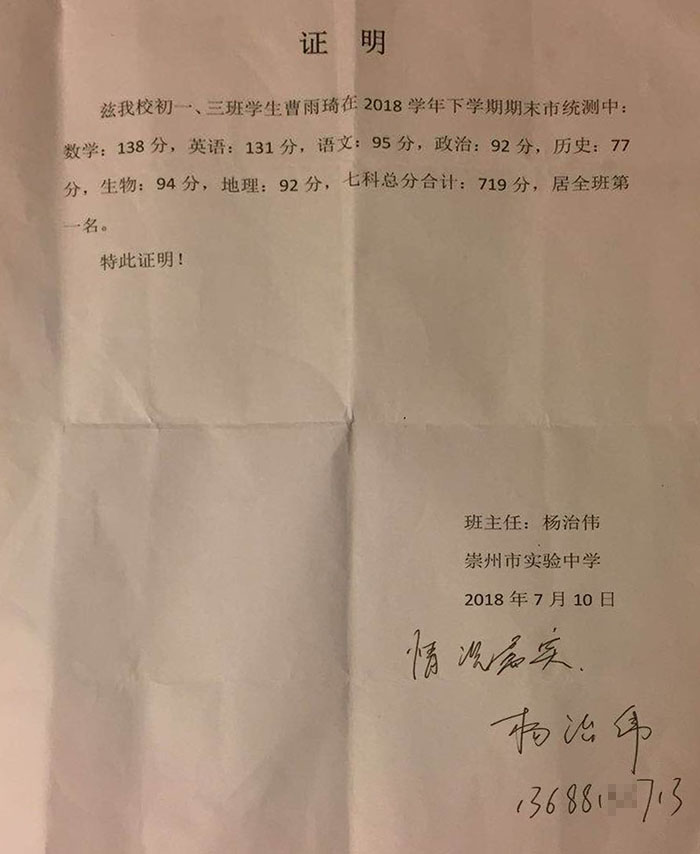 证 明
兹我校初一、三班学生曹雨琦在 2018 学年下学期期末市统测中：
数学：138 分，英语：131 分，语文：95 分，政治：92 分，历史：77
分，生物：94 分，地理：92 分，七科总分合计：719 分，居全班第
一名。
特此证明！
班主任：杨治伟
崇州市实验中学
2018 年 7 月 10 日
情况属实.
杨治伟
13688 713